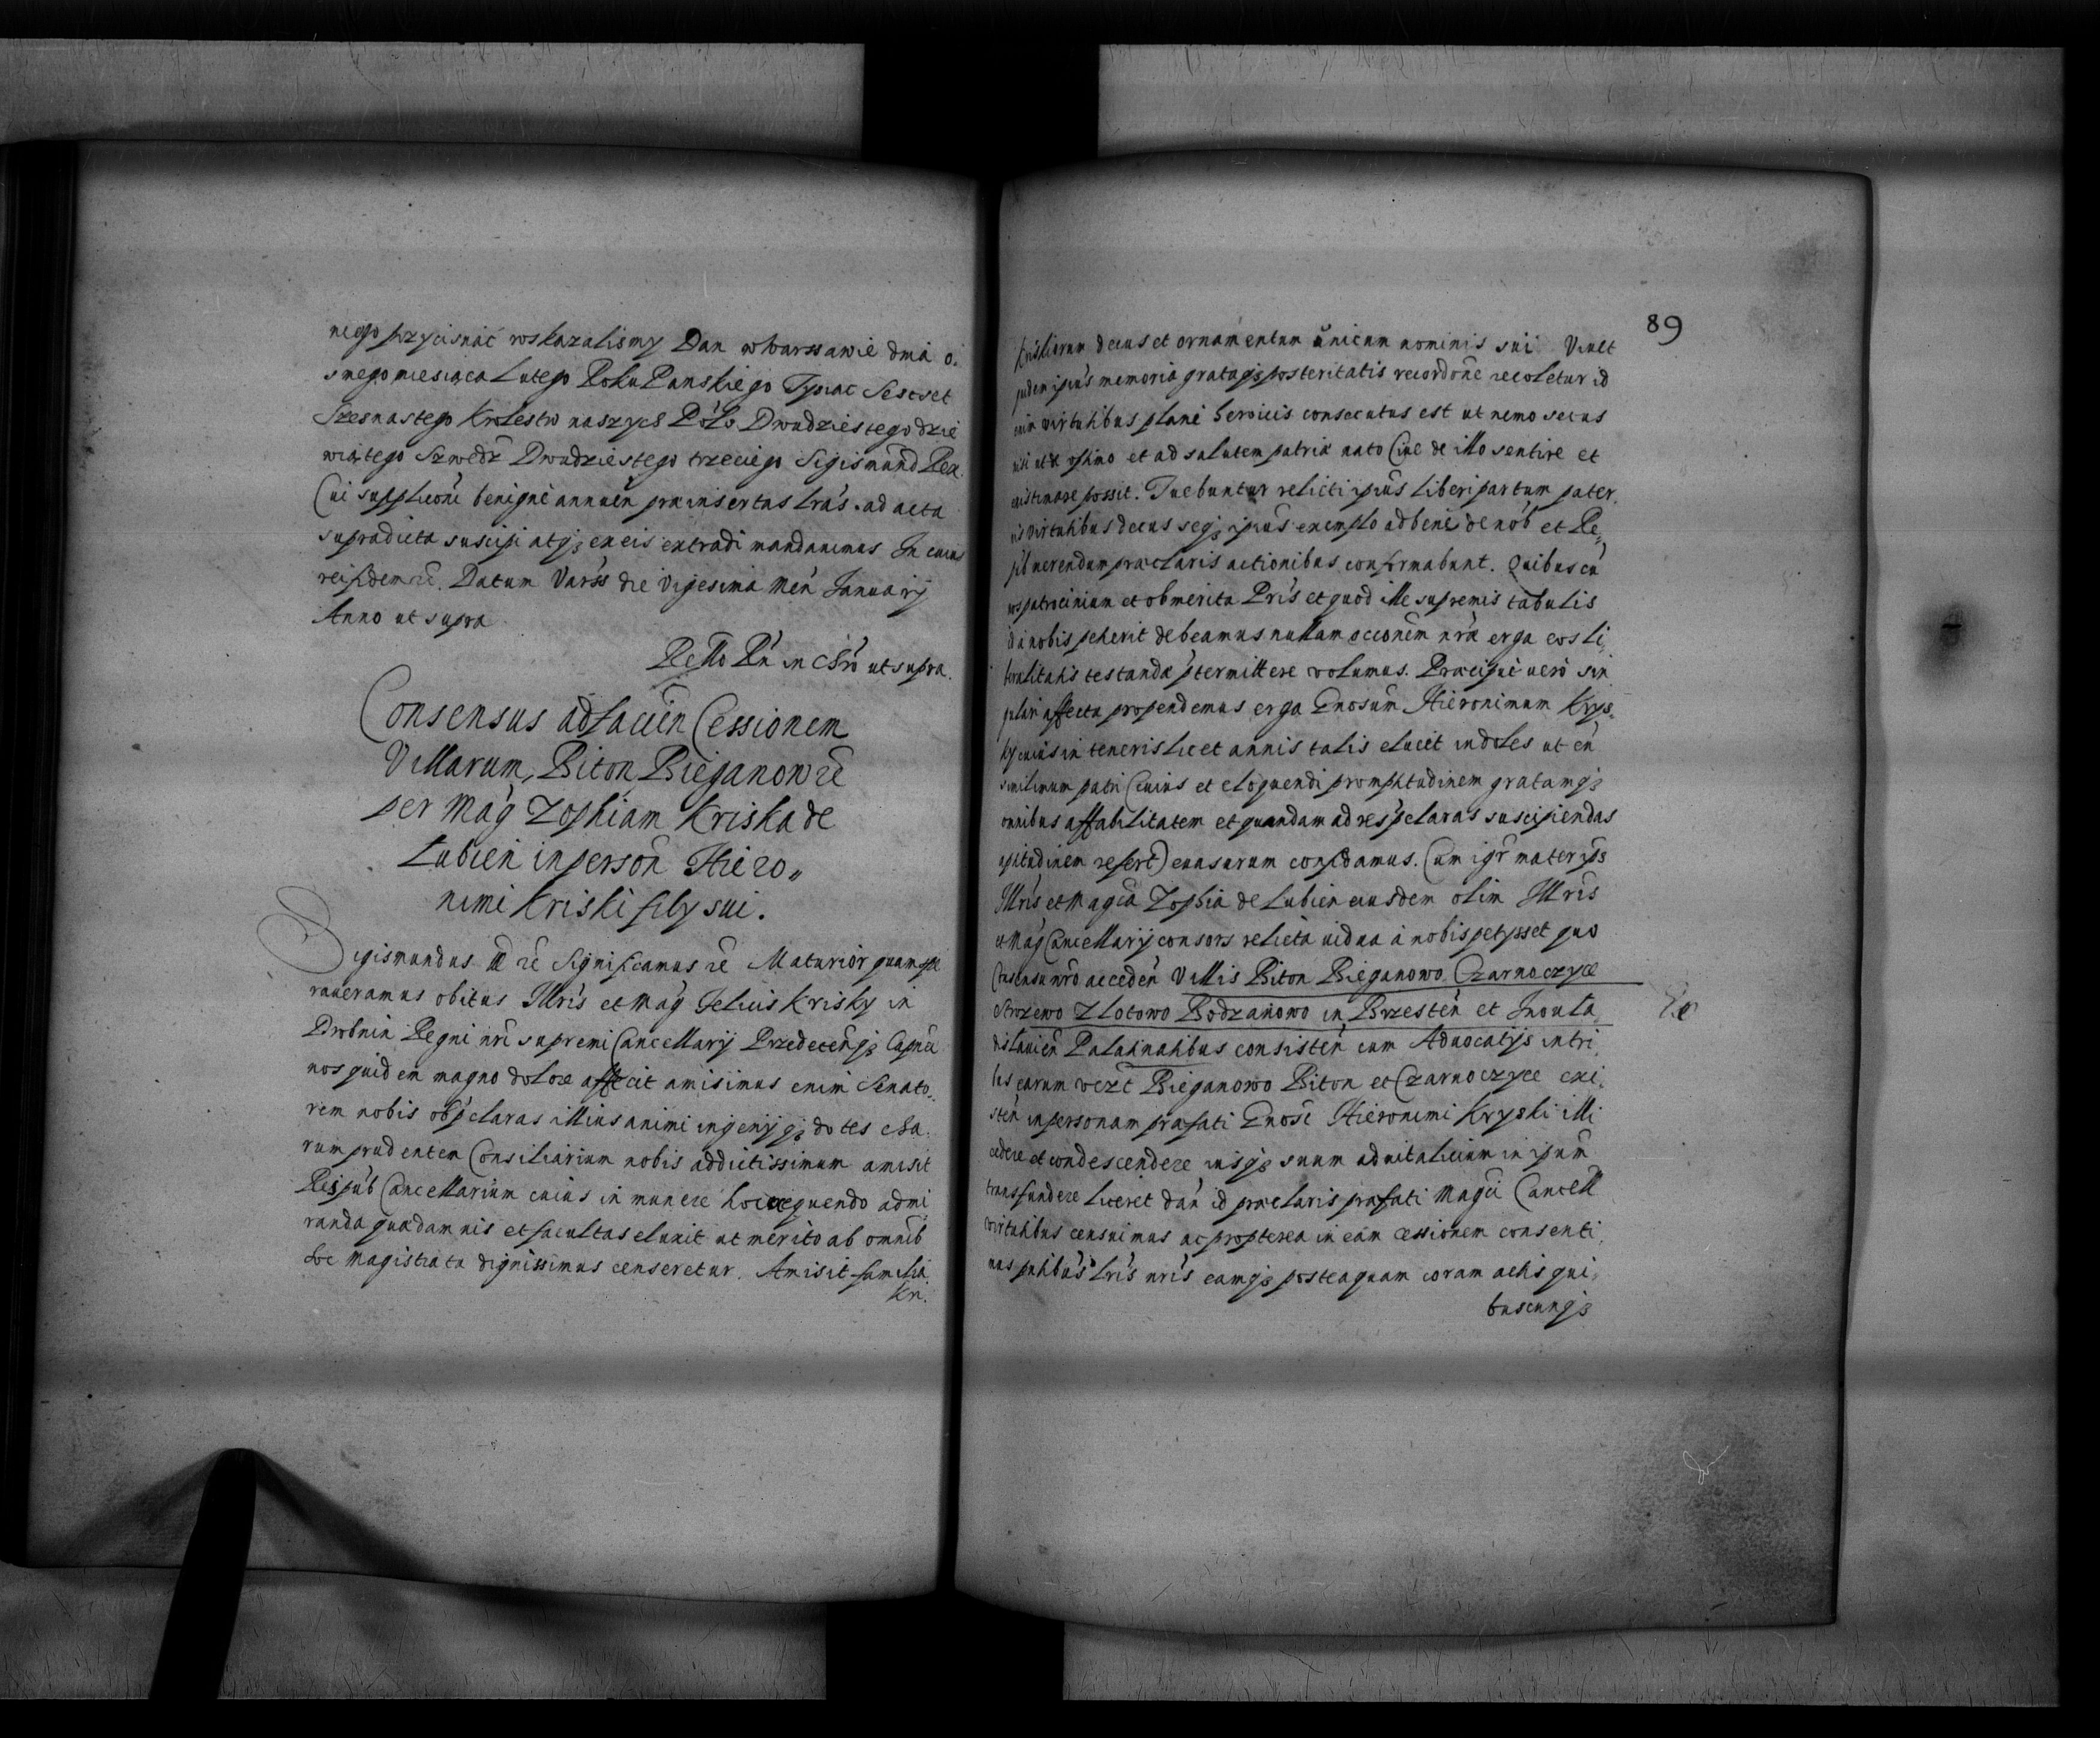 nego przycisnąć roskazalismy Dan w Warssawie dnia o.
smego miesiąca Lutego Roku Panskiego Tysiąc Sescset
Szesnastego Krolestw naszych Pols. Dwudziestego dzie
wiątego Szwedz Dwudziestego trzeciego Sigismund Rex.
Cui supplicõni benignè annuen præinsertas lras ad acta
supradicta suscipi atq; ex eis extradi mandauimus In cuius
rei fidem rc. Datum Varss die Vigesima Men Januarij
Anno ut supra
Rello Rñ in cstro ut supra.
Consensus ad faciēn Cessionem
Villarum, Biton Bieganow rc
per Mag Zophiam Kriska de
Lubien in person Hiero„
nimi Kriski filij sui.
Sigismundus III rc Significamus rc Maturior quam spe
raueramus obitus Illris et Mag Felicis Krisky in
Drobnin Regni nri supremi Cancellarij Przedecenq; Capnei
nos quidem magno dolore affecit amisimus enim Senato„
rem nobis ob pclaras illius animi ingenijq; dotes cha
rum prudentem Consiliarium nobis addictissimum amisit
Respub Cancellarium cuius in munere hoc exequendo admi
randa quædam uis et facultas eluxit ut merito ab omnib
hoc magistratu dignissimus censeretur. Amisit familia
Kri.
89
Krisciorum decus et ornamentum unicum nominis sui. Viuet
quidem ipius memoria grataq; posteritatis recordõne recoletur id
enim virtutibus planè heroicis consecutus est ut nemo secus
nisi ut de optimo et ad salutem patriæ nato Ciue de illo sentire et
existimare possit. Tuebuntur relicti ipius liberi partum pater
nis virtutibus decus seq; ipius exemplo ad benè de nob et Re„
pub merendum præclaris actionibus confirmabunt. Quibus cũ
nos patrocinium et ob merita Pris et quod ille supremis tabulis
id a nobis petierit debeamus nullam occõnem nræ erga eos li
beralitatis testandæ ptermittere volumus. Præcipuè uerò sin
gulari affectu propendemus erga Gnosum Hieronimum Krys.
ky cuius in teneris licet annis talis elucet indoles ut eũ
simillimum patri (cuius et eloquendi promptitudinem gratamq;
omnibus affabilitatem et quandam ad res pclaras suscipiendas
aptitudinem refert) euasurum confidamus. Cum igr mater ipis
Illris et Magca Zophia de Lubien eiusdem olim Illris
et Mag Cancellarij consors relicta uidua à nobis petysset quo
Consensu nro acceden Villis Biton Bieganowo Czarnoczyce
Strzewo Zlotowo Bodzanowo in Brzesten et Inoula
dislauien Palatinatibus consisten cum Aduocatijs in tri
bus earum uczt Bieganowo Biton et Czarnoczyce exi
sten in personam præfati Gnosi Hieronimi Kryski illi
cedere et condescendere iusq; suum aduitalicium in ipum
transfundere liceret dan id præclaris præfati Magci Cancell
virtutibus censuimus ac propterea in eam cessionem consenti
mus pntibus lris nris eamq; posteaquam coram actis qui
buscunq;